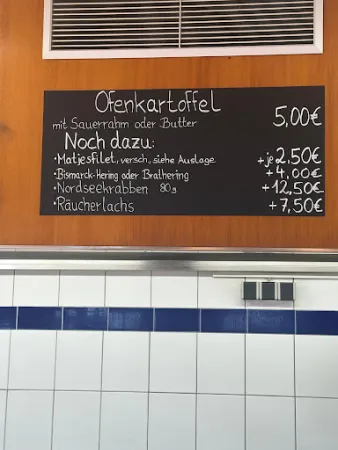 Ofenkartoffel
mit Sauerrahm oder Butter 5,00€
Noch dazu:
•Matjesfilet, versch., siehe Auslage +je 2,50€
•Bismarck-Hering oder Brathering +4,00€
•Nordseekrabben 80g +12,50€
•Räucherlachs +7,50€